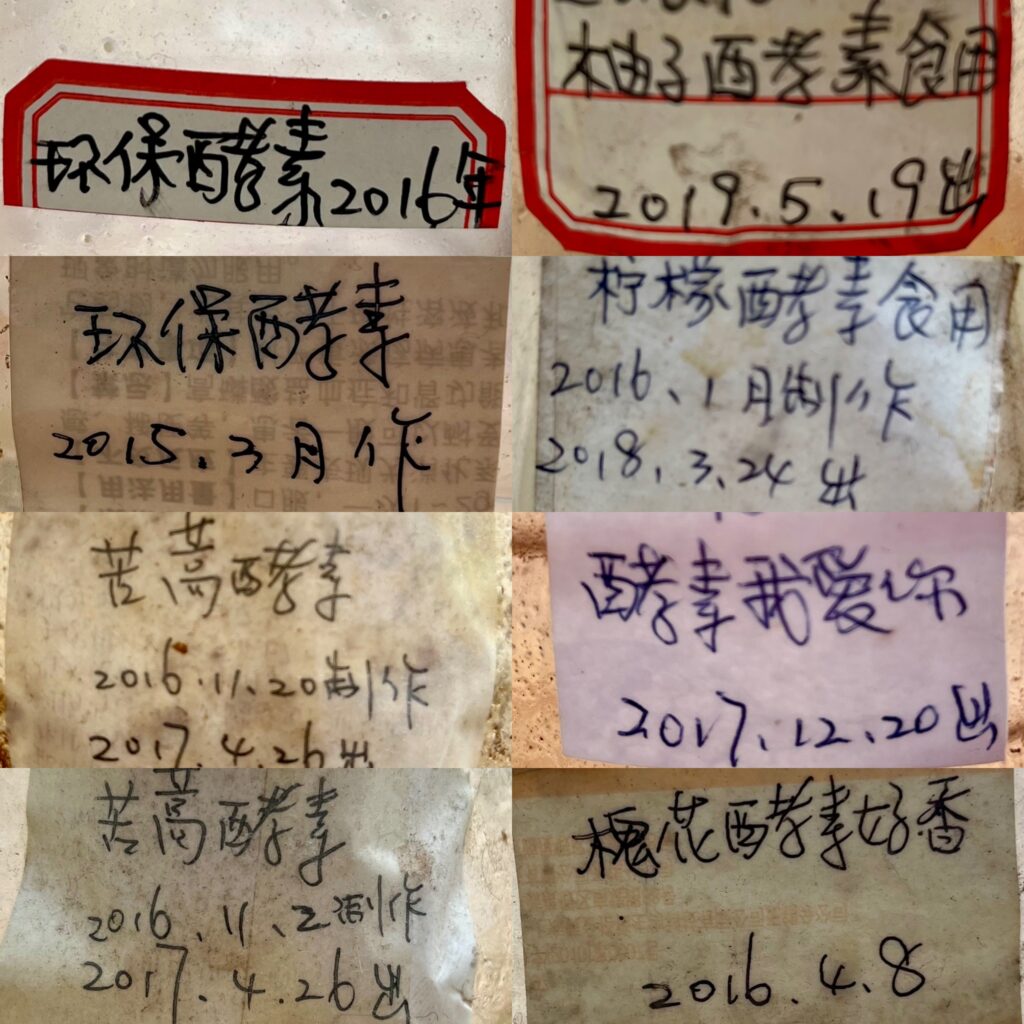 环保酵素2016年
柚子酵素食用
2019.5.19出
环保酵素
2015.3月作
柠檬酵素食用
2016.1月制作
2018.3.24出
苦蒿酵素
2016.11.20制作
2017.4.26出
酵素我爱你
2017.12.20出
苦蒿酵素
2016.11.2制作
2017.4.26出
槐花酵素好香
2016.4.8